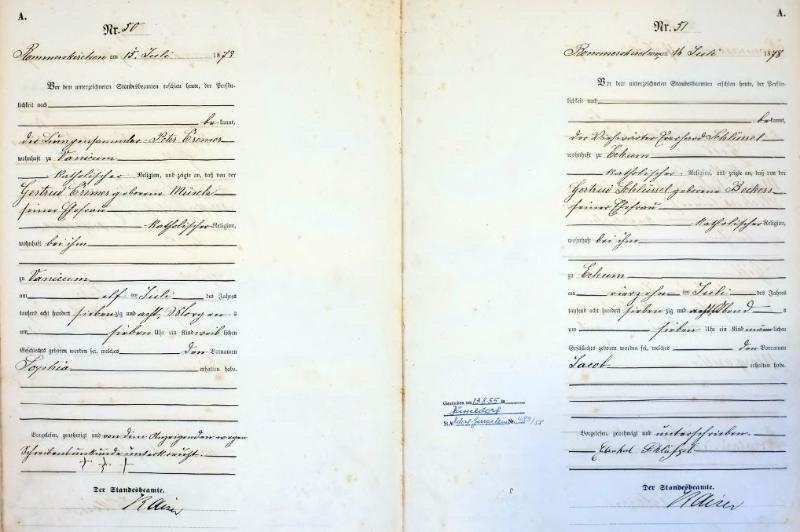 A.
Nr. 50
Rommerskirchen am 15. Juli 1878
Vor dem unterzeichneten Standesbeamten erschien heute, der Persön-
lichkeit nach
be kannt,
der Lumpensammler Petr Cremer
wohnhaft zu Vanicum
katholischer Religion, und zeigte an, daß von der
Gertrud Cremer geborene Münch
seiner Ehefrau
katholischer Religion,
wohnhaft bei ihm
zu Vanicum
am elf ten Juli des Jahres
tausend acht hundert sieben zig und acht, Morgens
um sieben Uhr ein Kind weib lichen
Geschlechts geboren worden sei, welches den Vornamen
Sophia erhalten habe.
Vorgelesen, genehmigt und von dem Anzeigenden wegen
Schreibensunkunde unterkreuzt.
+ + +
Der Standesbeamte.
Kaiser
A.
Nr. 51
Rommerskirchen am 16 Juli 1878
Vor dem unterzeichneten Standesbeamten erschien heute, der Persön-
lichkeit nach
be kannt,
der Viehwärter Everhard Schlüssel
wohnhaft zu Eckum
katholischer Religion, und zeigte an, daß von der
Gertrud Schlüssel geborene Beckers
seiner Ehefrau
katholischer Religion,
wohnhaft bei ihm
zu Eckum
am vierzehn ten Juli des Jahres
tausend acht hundert sieben zig und acht Abend s
um sieben Uhr ein Kind männ lichen
Geschlechts geboren worden sei, welches den Vornamen
Jacob erhalten habe.
Gestorben am 13.8.55 in
Düsseldorf
St.A. Nr. 489/55
Vorgelesen, genehmigt und unterschrieben.
Schlüssel
Der Standesbeamte.
Kaiser